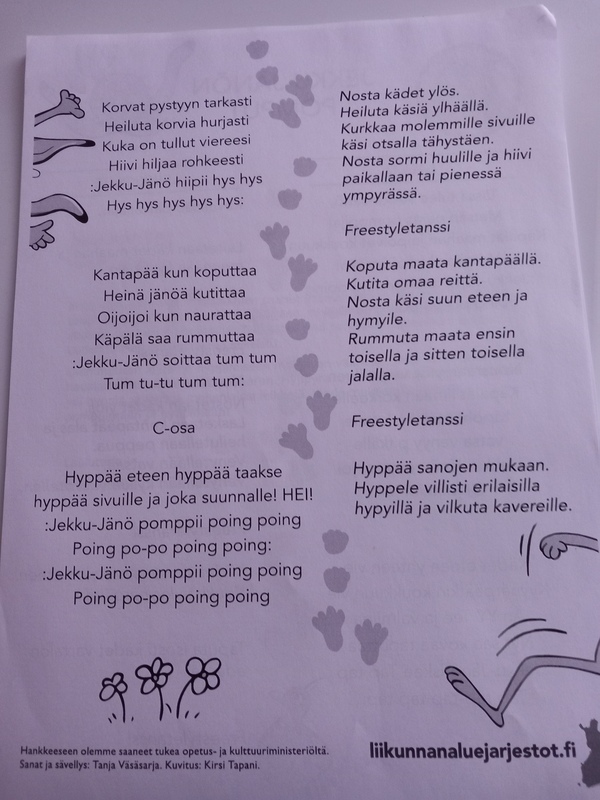 Korvat pystyyn tarkasti
Heiluta korvia hurjasti
Kuka on tullut viereesi
Hiivi hiljaa rohkeesti
:Jekku-Jänö hiipii hys hys
Hys hys hys hys hys:
Kantapää kun koputtaa
Heinä jänöä kutittaa
Oijoijoi kun naurattaa
Käpälä saa rummuttaa
:Jekku-Jänö soittaa tum tum
Tum tu-tu tum tum:
C-osa
Hyppää eteen hyppää taakse
hyppää sivuille ja joka suunnalle! HEI!
:Jekku-Jänö pomppii poing poing
Poing po-po poing poing:
:Jekku-Jänö pomppii poing poing
Poing po-po poing poing
Nosta kädet ylös.
Heiluta käsiä ylhäällä.
Kurkkaa molemmille sivuille
käsi otsalla tähystäen.
Nosta sormi huulille ja hiivi
paikallaan tai pienessä
ympyrässä.
Freestyletanssi
Koputa maata kantapäällä.
Kutita omaa reittä.
Nosta käsi suun eteen ja
hymyile.
Rummuta maata ensin
toisella ja sitten toisella
jalalla.
Freestyletanssi
Hyppää sanojen mukaan.
Hyppele villisti erilaisilla
hypyillä ja vilkuta kavereille.
Hankkeeseen olemme saaneet tukea opetus- ja kulttuuriministeriöltä.
Sanat ja sävellys: Tanja Väsäsarja. Kuvitus: Kirsi Tapani.
liikunnanaluejarjestot.fi